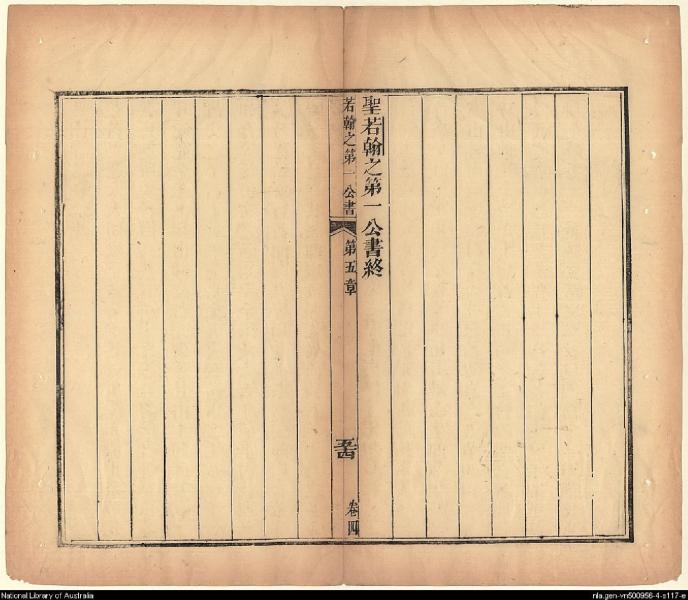 聖若翰之第一公書終
若翰之第一公書
第五章
五十四
卷四
National Library of Australia
nla.gen-vn500956-4-s117-e